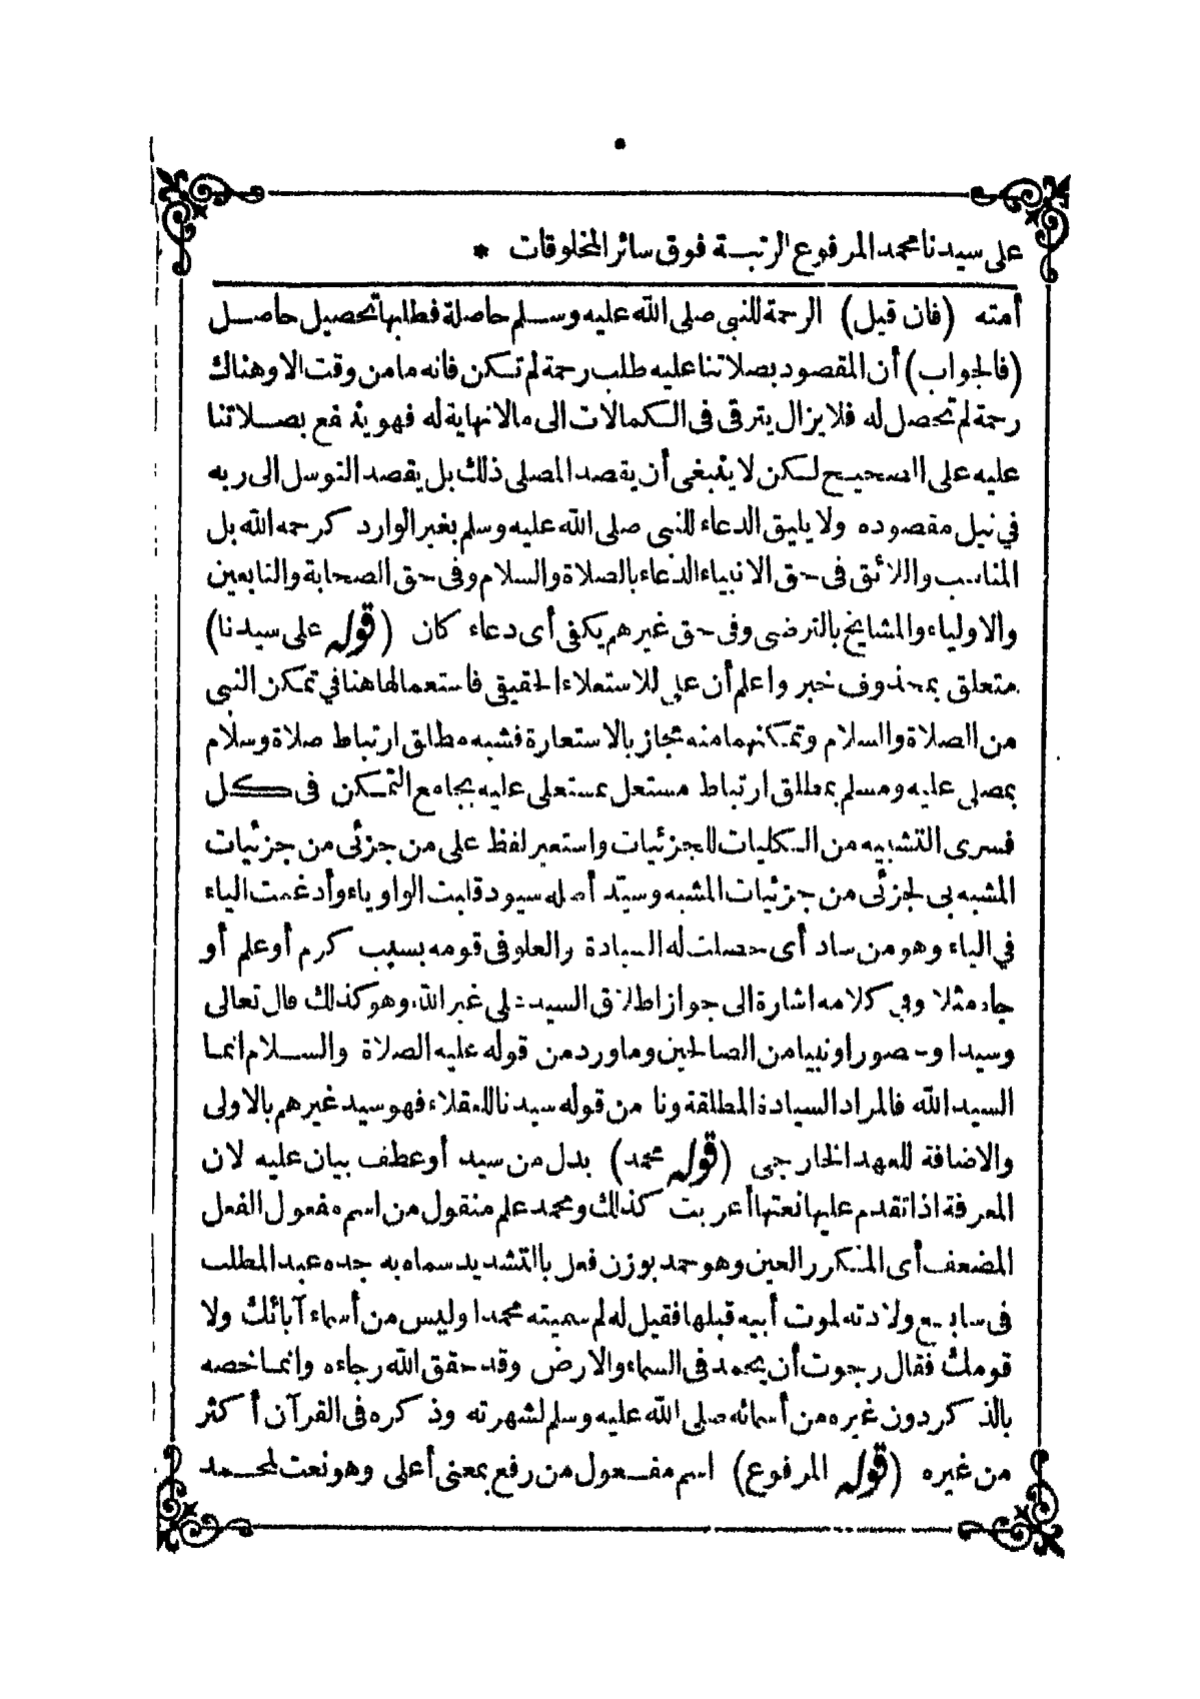 على سيدنا محمد المرفوع الرتبة فوق سائر المخلوقات *
أمته (فان قيل) الرحمة للنبي صلى الله عليه وسلم حاصلة فطلبها تحصيل حاصل
(فالجواب) أن المقصود بصلاتنا عليه طلب رحمة لم تكن فانه ما من وقت الا وهناك
رحمة لم تحصل له فلا يزال يترقى فى الكمالات الى مالا نهاية له فهو ينتفع بصلاتنا
عليه على الصحيح لكن لا ينبغى أن يقصد المصلى ذلك بل يقصد التوسل الى ربه
في نيل مقصوده ولا يليق الدعاء للنبى صلى الله عليه وسلم بغير الوارد كرحمه الله بل
المناسب واللائق فى حق الانبياء الدعاء بالصلاة والسلام وفى حق الصحابة والتابعين
والاولياء والمشايخ بالترضى وفى حق غيرهم يكفى أى دعاء كان (قوله على سيدنا)
متعلق بمحذوف خبر واعلم أن على للاستعلاء الحقيقى فاستعمالها هنا في تمكن النبى
من الصلاة والسلام وتمكنهما منه مجاز بالاستعارة فشبه مطلق ارتباط صلاة وسلام
بمصلى عليه ومسلم بمطلق ارتباط مستعل بمستعلى عليه بجامع التمكن فى كل
فسرى التشبيه من الكليات للجزئيات واستعير لفظ على من جزئى من جزئيات
المشبه به لجزئى من جزئيات المشبه وسيد أصله سيود قلبت الواو ياء وأدغمت الياء
في الياء وهو من ساد أى حصلت له السيادة والعلو فى قومه بسبب كرم أو علم أو
جاه مثلا وفى كلامه اشارة الى جواز اطلاق السيد على غير الله وهو كذلك قال تعالى
وسيدا وحصورا ونبيا من الصالحين وما ورد من قوله عليه الصلاة والسلام انما
السيد الله فالمراد السيادة المطلقة ونا من قوله سيدنا للعقلاء فهو سيد غيرهم بالاولى
والاضافة للعهد الخارجى (قوله محمد) بدل من سيد أو عطف بيان عليه لان
المعرفة اذا تقدم عليها نعتها أعربت كذلك ومحمد علم منقول من اسم مفعول الفعل
المضعف أى المكرر العين وهو حمد بوزن فعل بالتشديد سماه به جده عبد المطلب
فى سابع ولادته لموت أبيه قبلها فقيل له لم سميته محمدا وليس من أسماء آبائك ولا
قومك فقال رجوت أن يحمد فى السماء والارض وقد حقق الله رجاءه وانما خصه
بالذكر دون غيره من أسمائه صلى الله عليه وسلم لشهرته وذكره فى القرآن أكثر
من غيره (قوله المرفوع) اسم مفعول من رفع بمعنى أعلى وهو نعت لمحمد